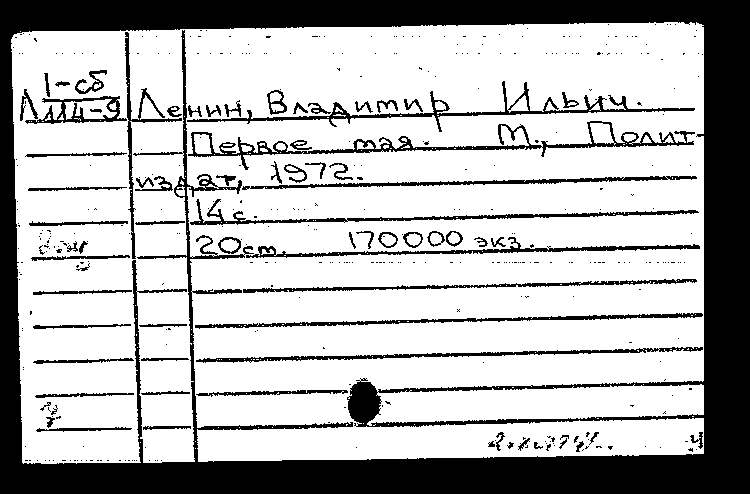 1-сб
Л114-9 Ленин, Владимир Ильич.
Первое мая. М., Полит-
издат, 1972.
14 с.
20 ст. 170000 экз.